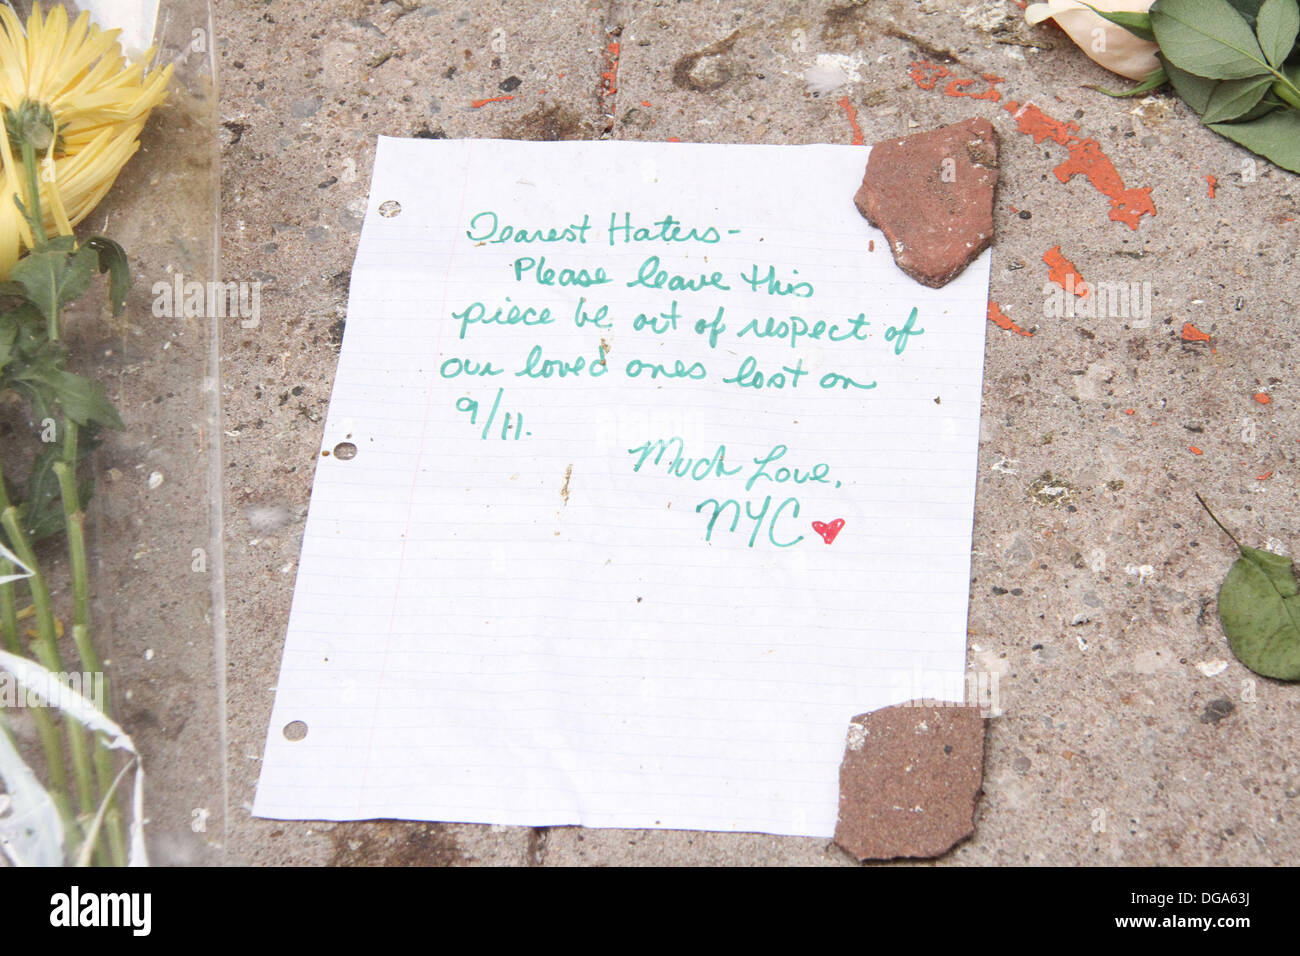 Dearest Haters-
Please leave this
piece be out of respect of
our loved ones lost on
9/11.
Much Love,
NYC ♥
alamy
alamy
Image ID: DGA63J
www.alamy.com